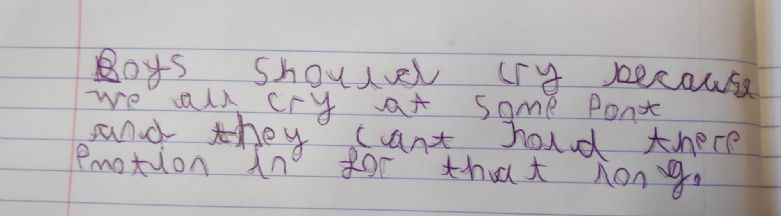 Boys should cry because
we all cry at some Pont
and they cant hold there
emotion in for that long.